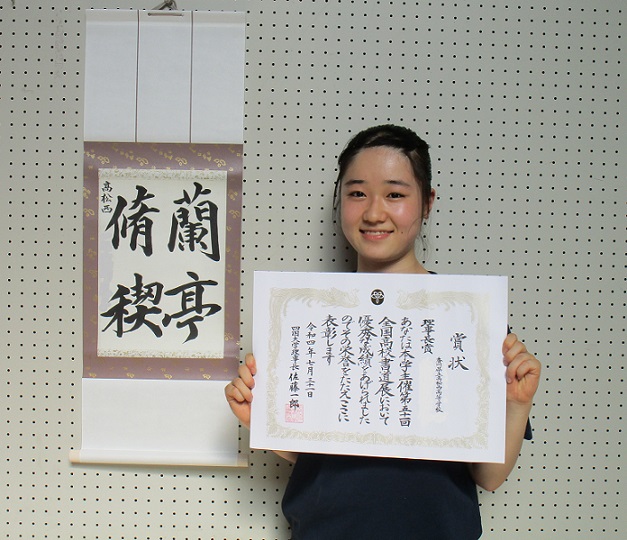 蘭亭
脩稧
高松西
賞状
理事長賞
香川県立高松西高等学校
あなたは本学主催第五十一回
全国高校書道展において
優秀な成績をあげられました
のでその栄誉をたたえここに
表彰します
令和四年七月
四国大学理事長 佐藤一郎